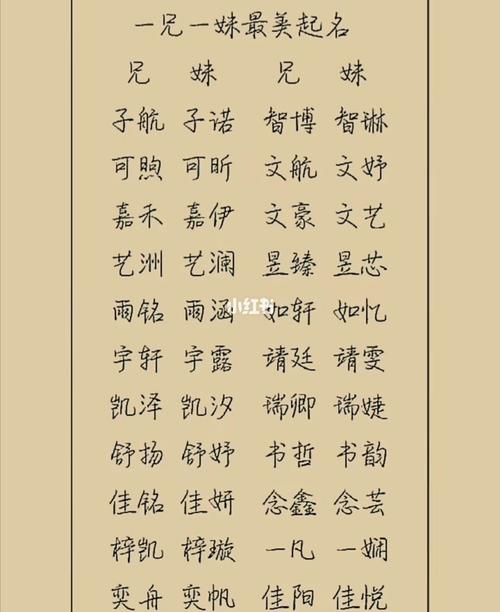 一兄一妹最美起名
兄 妹 兄 妹
子航 子诺 智博 智琳
可煦 可昕 文航 文妤
嘉禾 嘉伊 文豪 文艺
艺洲 艺澜 昱臻 昱芯
雨铭 雨涵 如轩 如忆
小红书
宇轩 宇露 靖廷 靖雯
凯泽 凯汐 瑞卿 瑞婕
舒扬 舒妤 书哲 书韵
佳铭 佳妍 念鑫 念芸
梓凯 梓璇 一凡 一娴
奕舟 奕帆 佳阳 佳悦